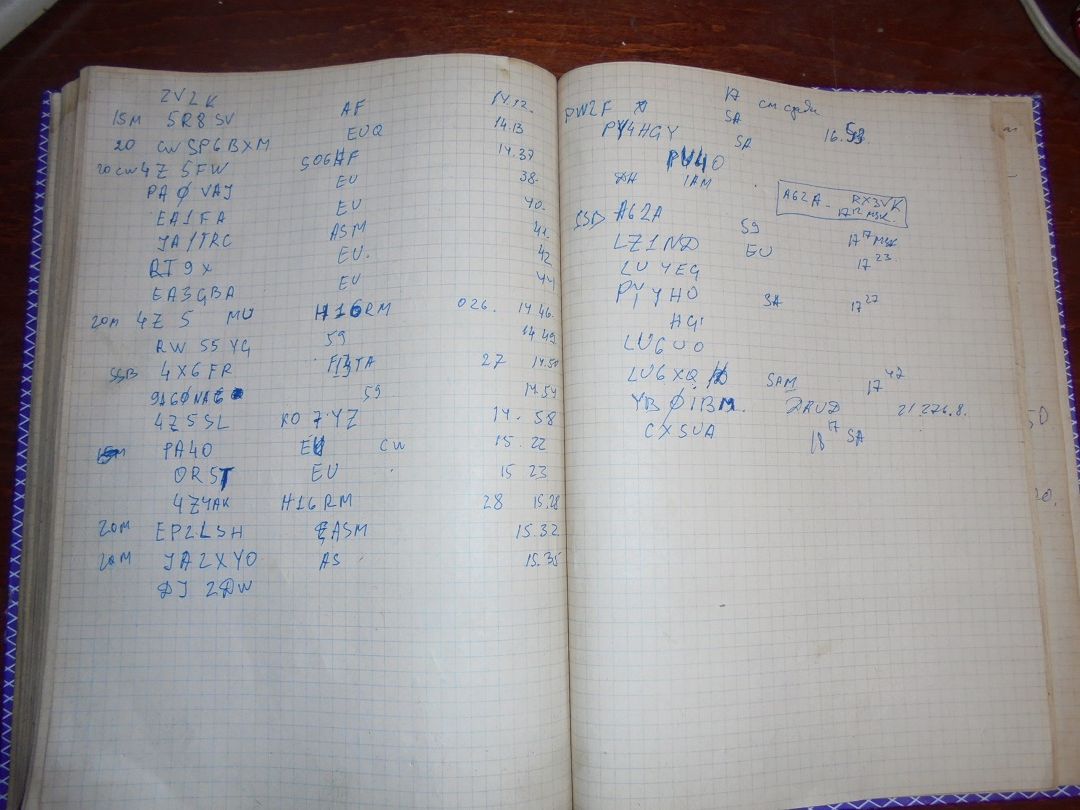 ZV2K
15M 5R8SV AF 14.12.
20 CW SP6BXM EUQ 14.13
20 CW 4Z5FW SO6HF 14.37
PAØVAJ EU 38
EA1FA EU 40.
JA1TRC ASM 41.
RT9X EU. 42
EA3GBA EU 44
20M 4Z5MU H16RM 026. 14.46.
RW55YG 59 14.49
SSB 4X6FR 27 14.50
59 14.54
4Z5SL KO7YZ 14.58
PA4O EU CW 15.22
OR5T EU 15 23
4Z4AK H16RM 28 15.28
20M EP2LSH ASM 15.32
20M JA2XYO AS 15.35
DJ2DW
PW2F 17 см среди
PY4HGY SA 16.
SA
PV4O
1AM
A62A - RX3VK
17 12 MSK.
SSB A62A 59 17 17 MSK
LZ1ND EU 17 23.
LU4EG
PY4HO SA 17 27
HGI
LU6UO
LU6XQ SAM 17 47
YBØIBM. 2RUD 21.276.8.
CX5UA 18 17 SA
50.
20.